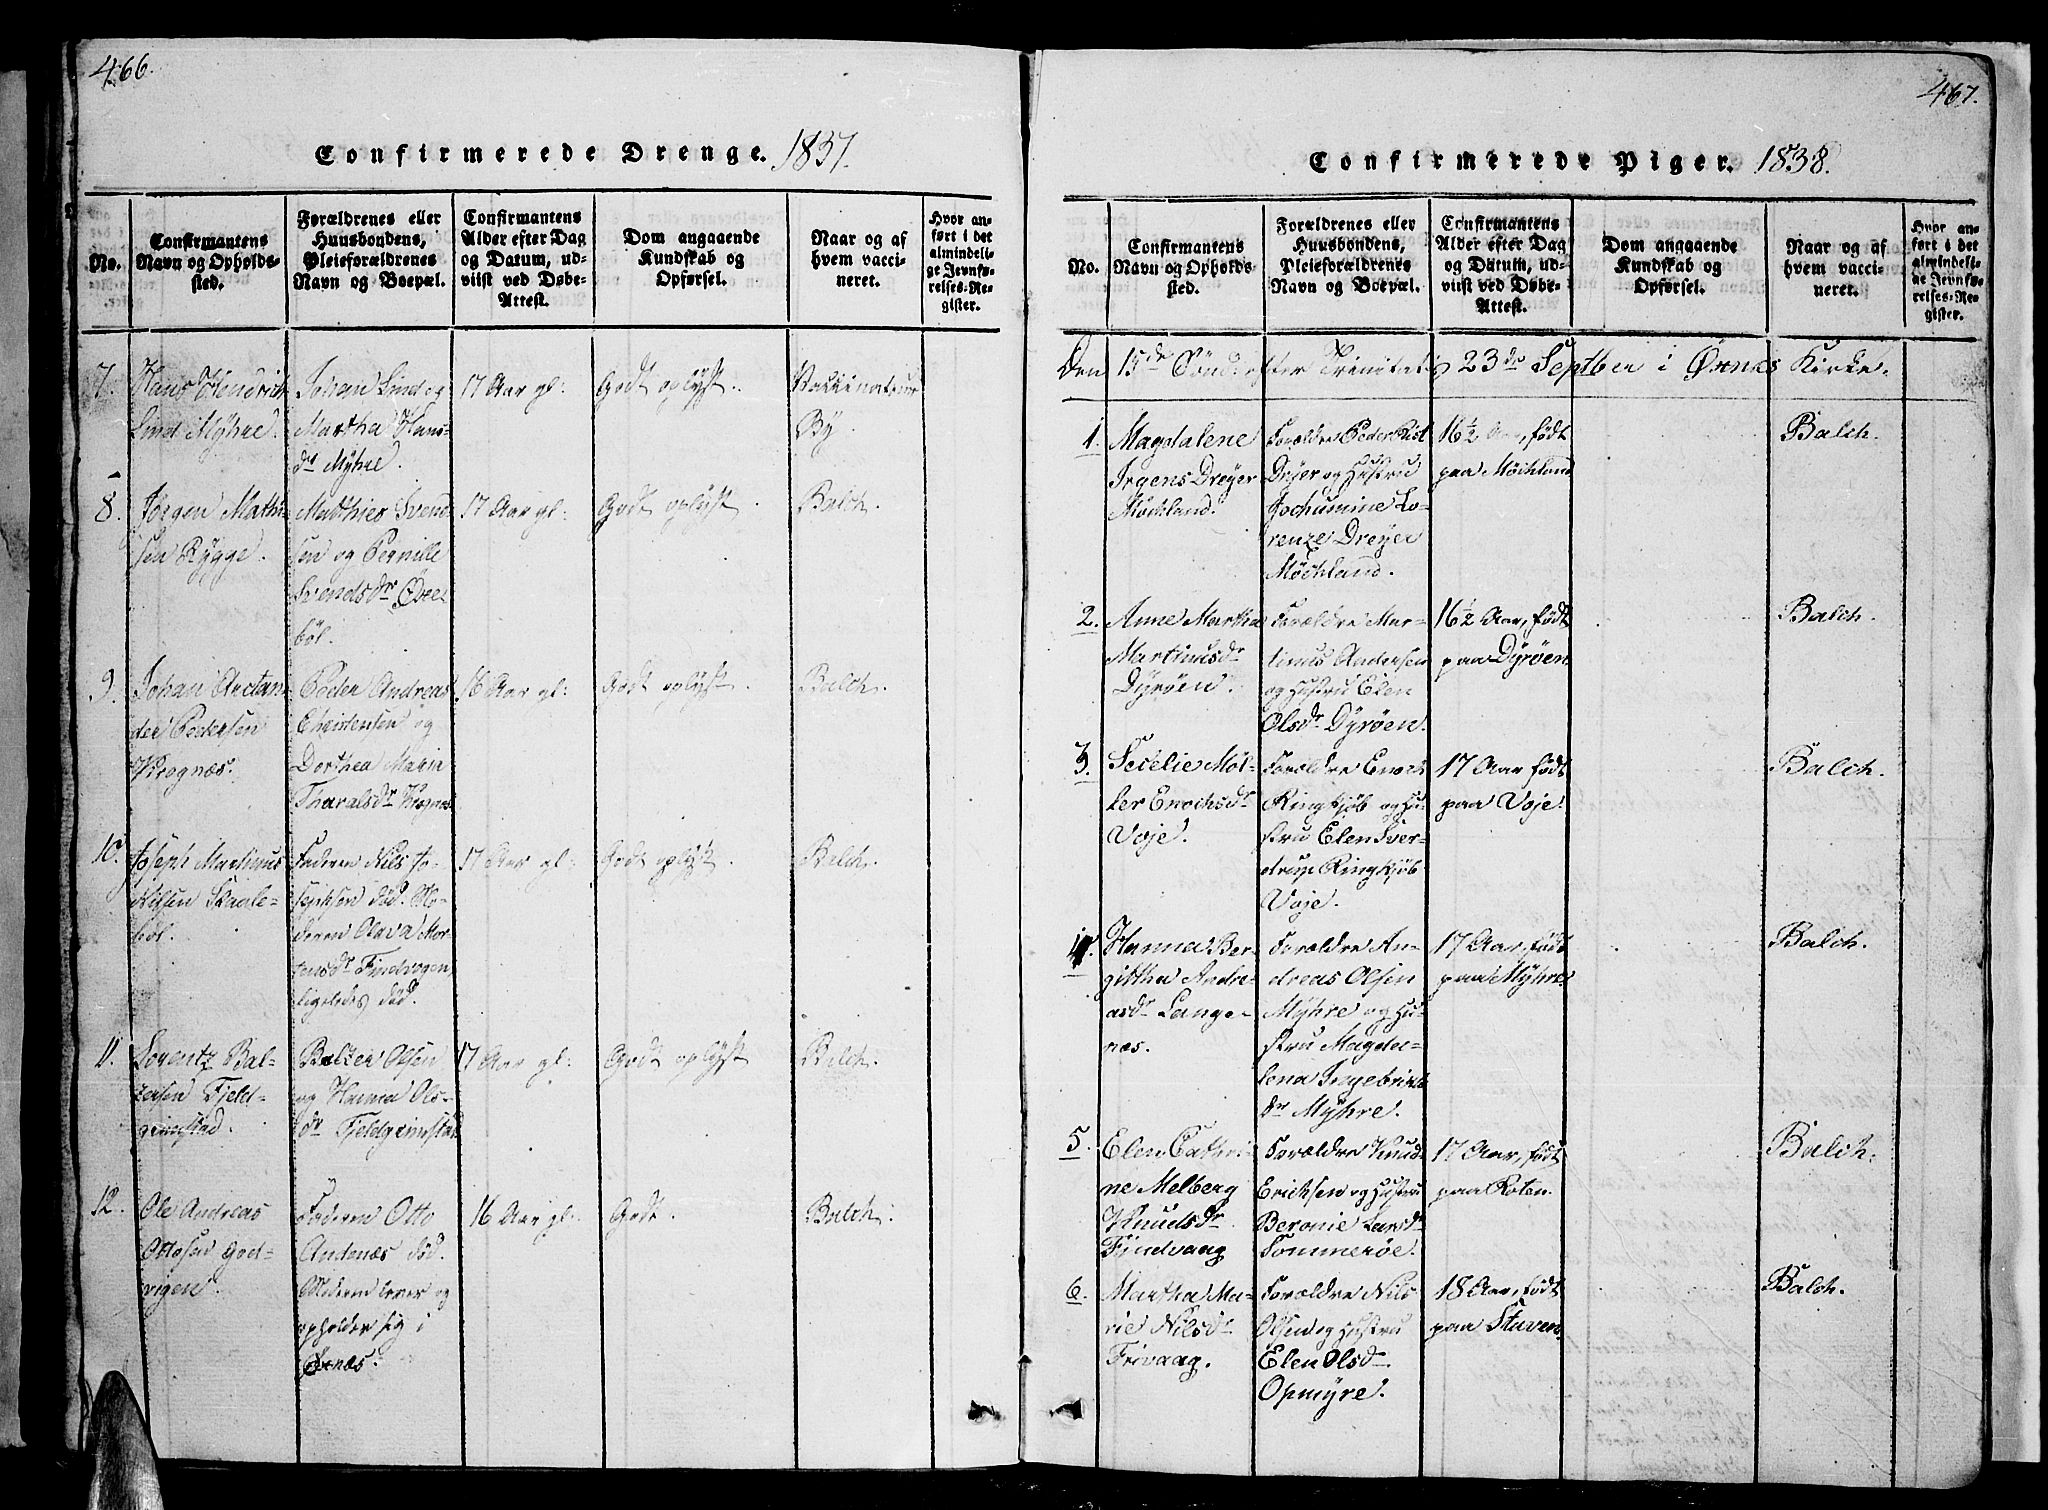 466.
Confirmerede Drenge. 1837.
No.
Confirmantens
Navn og Opholds-
sted.
Forældrenes eller
Huusbondens,
Pleieforældrenes
Navn og Boepæl.
Confirmantens
Alder efter Dag
og Datum, ud-
viist ved Døbe-
Attest.
Dom angaaende
Kundskab og
Opførsel.
Naar og af
hvem vacci-
neret.
Hvor an-
ført i det
almindeli-
ge Jevnfø-
relses-Re-
gister.
7.
Hans Hendrich
Lind Myhre.
Johan Lind og
Martha Hans-
dr Myhre.
17 Aar gl:
Godt oplyst.
Vaccinateur
By
8.
Jørgen Mathi-
sen Rygge.
Matthies Svend
sen og Pernille
Svendsdr Øvre-
böl.
17 Aar gl:
Godt oplyst.
Balch.
9.
Johan
der Pedersen
Krognæs.
Peder Andreas
Christensen og
Dorthea Maria
Tharalsdr Krognæs
16 Aar gl:
Godt oplyst.
Balch.
10.
Joseph Martinus
Nilsen Skaale-
böl.
Faderen Nils Jo-
sephsen död. Mo-
deren Olava Mor-
tensdr Findvogen,
ligeledes död.
17 Aar gl:
Godt oplyst.
Balch.
11.
Lorentz Bal-
zersen Fjeld-
grimstad.
Balzer Olsen
og Hanna Ols-
dr Fjeldgrimstad
17 Aar gl:
Godt oplyst
Balch.
12.
Ole Andreas
Ottosen God-
vigen.
Faderen Otto
Andenæs död.
Moderen lever og
opholder sig i
16 Aar gl:
Godt.
Balch.
467.
Confirmerede Piger. 1838.
No.
Confirmantens
Navn og Opholds-
sted.
Forældrenes eller
Huusbondens,
Pleieforældrenes
Navn og Boepæl.
Confirmantens
Alder efter Dag
og Datum, ud-
viist ved Døbe-
Attest.
Dom angaaende
Kundskab og
Opførsel.
Naar og af
hvem vacci-
neret.
Hvor an-
ført i det
almindeli-
ge Jevnfø-
relses-Re-
gister.
Den 15de Sönd: efter Trinitatis 23de Septber i Öxnes Kirke.
1.
Magdalene
Irgens Dreyer
Möckland.
Forældre Peder Rist
Dreyer og Hustru
Jochumine Lo-
renze Dreyer
Möckland.
16½ Aar, födt
paa Möckland
Balch.
2.
Anne Martha
Martinusdr
Dyröen.
Forældre Mar-
tinus Andersen
og Hustru Elen
Olsdr Dyröen.
16½ Aar, födt
paa Dyröen
Balch.
3.
Secelie Möl-
ler Enochsdr
Voje.
Forældre Enoch
Ringkjöb og Hu-
stru Elen Sver-
drup Ringkjöb
Voje.
17 Aar födt
paa Voje.
Balch.
Hanna Ber-
gittha Andre-
asdr Lange-
næs.
Forældre An-
dreas Olsen
Myhre og Hu-
stru Magda-
lena Ingebrigt
dr Myhre.
17 Aar, födt
paa Myhre
Balch.
5.
Elen Cathri-
ne Melberg
Knudsdr
Findvaag
Forældre Knud
Erichsen og Hustru
Beronie Larsdr
Sommeröe.
17 Aar, födt
paa Roten.
Balch.
6.
Martha Ma-
rie Nilsdr
Frivaag.
Forældre Nils
Olsen og Hustru
Elen Olsdr
Opmyre.
18 Aar, födt
paa Staven
Balch.